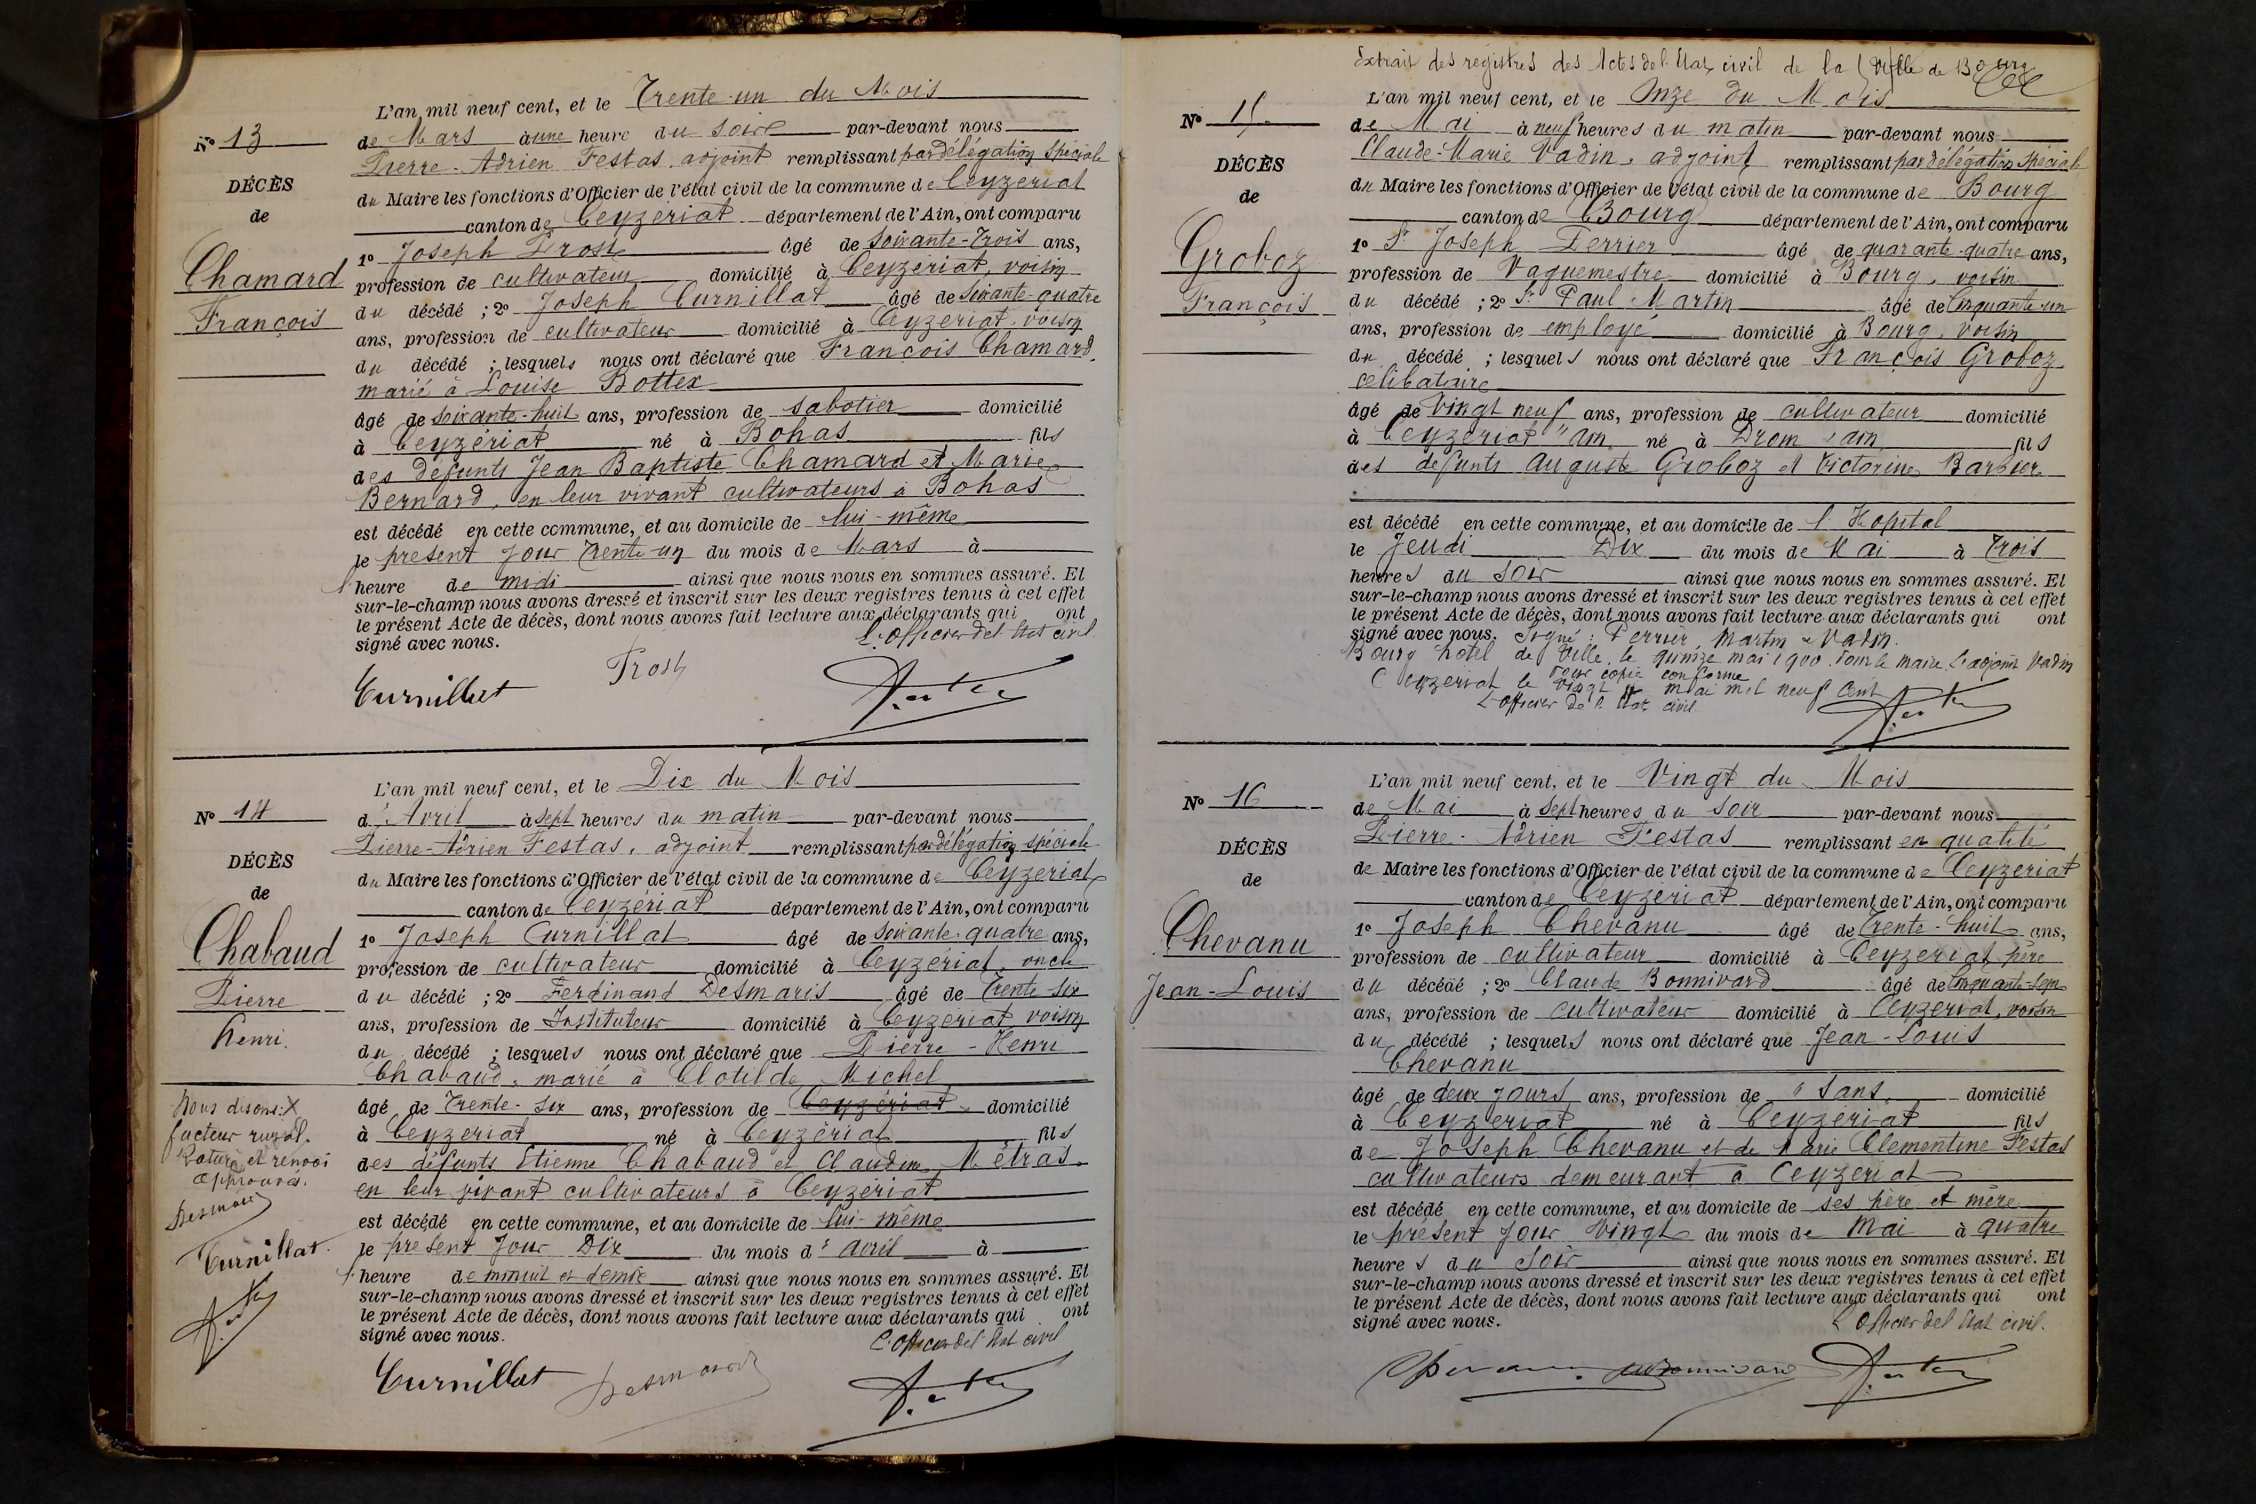 N° 13
DÉCÈS
de
Chamard
François
L'an mil neuf cent, et le Trente-un du Mois
de Mars à une heure du soir par-devant nous
Pierre-Adrien Festas, adjoint remplissant par délégation spéciale
du Maire les fonctions d'Officier de l'état civil de la commune de Ceyzeriat
canton de Ceyzériat département de l'Ain, ont comparu
1° Joseph Prost âgé de soixante-Trois ans,
profession de cultivateur domicilié à Ceyzériat, voisin
du décédé ; 2° Joseph Curnillat âgé de soixante-quatre
ans, profession de cultivateur domicilié à Ceyzeriat, voisin
du décédé ; lesquels nous ont déclaré que François Chamard,
marié à Louise Bottex
âgé de soixante-huit ans, profession de sabotier domicilié
à Ceyzériat né à Bohas fils
des défunts Jean Baptiste Chamard et Marie
Bernard, en leur vivant cultivateurs à Bohas
est décédé en cette commune, et au domicile de lui-même
le présent jour Trente-un du mois de Mars à
l'heure de midi ainsi que nous nous en sommes assuré. Et
sur-le-champ nous avons dressé et inscrit sur les deux registres tenus à cet effet
le présent Acte de décès, dont nous avons fait lecture aux déclarants qui ont
signé avec nous. L'officier de l'état civil
Curnillat Prost
N° 14
DÉCÈS
de
Chabaud
Pierre
Henri.
Nous disons: X
facteur rural.
Rature et renvoi
approuvés.
Desmaris
Curnillat.
L'an mil neuf cent, et le Dix du Mois
d'Avril à sept heures du matin par-devant nous
Pierre-Adrien Festas, adjoint remplissant par délégation spéciale
du Maire les fonctions d'Officier de l'état civil de la commune de Ceyzeriat
canton de Ceyzériat département de l'Ain, ont comparu
1° Joseph Curnillat âgé de soixante-quatre ans,
profession de cultivateur domicilié à Ceyzeriat, oncle
du décédé ; 2° Ferdinand Desmaris âgé de Trente-six
ans, profession de Instituteur domicilié à Ceyzeriat voisin
du décédé ; lesquels nous ont déclaré que Pierre-Henri
Chabaud, marié à Clotilde Michel
âgé de Trente-six ans, profession de Ceyzériat X domicilié
à Ceyzeriat né à Ceyzériat fils
des défunts Etienne Chabaud et Claudine Métras,
en leur vivant cultivateurs à Ceyzériat
est décédé en cette commune, et au domicile de lui-même
le présent jour Dix du mois d'avril à
l'heure de minuit et demie ainsi que nous nous en sommes assuré. Et
sur-le-champ nous avons dressé et inscrit sur les deux registres tenus à cet effet
le présent Acte de décès, dont nous avons fait lecture aux déclarants qui ont
signé avec nous. L'officier de l'état civil
Curnillat Desmaris
Extrait des registres des Actes de l'état civil de la Ville de Bourg
N° 15.
DÉCÈS
de
Groboz
François
L'an mil neuf cent, et le Onze du Mois
de Mai à neuf heures du matin par-devant nous
Claude-Marie Vadin, adjoint remplissant par délégation spéciale
du Maire les fonctions d'Officier de l'état civil de la commune de Bourg
canton de Bourg département de l'Ain, ont comparu
1° Sr Joseph Perrier âgé de quarante-quatre ans,
profession de Vaguemestre domicilié à Bourg, voisin
du décédé ; 2° Sr Paul Martin âgé de cinquante-un
ans, profession de employé domicilié à Bourg, voisin
du décédé ; lesquels nous ont déclaré que François Groboz
célibataire
âgé de Vingt neuf ans, profession de cultivateur domicilié
à Ceyzeriat "ain né à Drom "ain fils
des défunts Auguste Groboz et Victorine Barbier
est décédé en cette commune, et au domicile de l'Hopital
le Jeudi Dix du mois de Mai à Trois
heures du soir ainsi que nous nous en sommes assuré. Et
sur-le-champ nous avons dressé et inscrit sur les deux registres tenus à cet effet
le présent Acte de décès, dont nous avons fait lecture aux déclarants qui ont
signé avec nous. Signé : Perrier, Martin & Vadin.
Bourg hôtel de Ville, le quinze mai 1900. Pour le maire L'adjoint Vadin
Pour copie conforme
Ceyzeriat le vingt mai mil neuf cent
L'officier de l'état civil
N° 16
DÉCÈS
de
Chevanu
Jean-Louis
L'an mil neuf cent, et le Vingt du Mois
de Mai à sept heures du soir par-devant nous
Pierre-Adrien Festas remplissant en qualité
de Maire les fonctions d'Officier de l'état civil de la commune de Ceyzeriat
canton de Ceyzériat département de l'Ain, ont comparu
1° Joseph Chevanu âgé de Trente-huit ans,
profession de cultivateur domicilié à Ceyzeriat père
du décédé ; 2° Claude Bonnivard âgé de cinquante-sept
ans, profession de cultivateur domicilié à Ceyzeriat, voisin
du décédé ; lesquels nous ont déclaré que Jean-Louis
Chevanu
âgé de deux jours ans, profession de " sans. domicilié
à Ceyzeriat né à Ceyzeriat fils
de Joseph Chevanu et de Marie Clementine Festas
cultivateurs demeurant à Ceyzeriat
est décédé en cette commune, et au domicile de ses père et mère
le présent jour Vingt du mois de Mai à quatre
heures du soir ainsi que nous nous en sommes assuré. Et
sur-le-champ nous avons dressé et inscrit sur les deux registres tenus à cet effet
le présent Acte de décès, dont nous avons fait lecture aux déclarants qui ont
signé avec nous. L'officier de l'état civil.
Chevanu Bonnivard